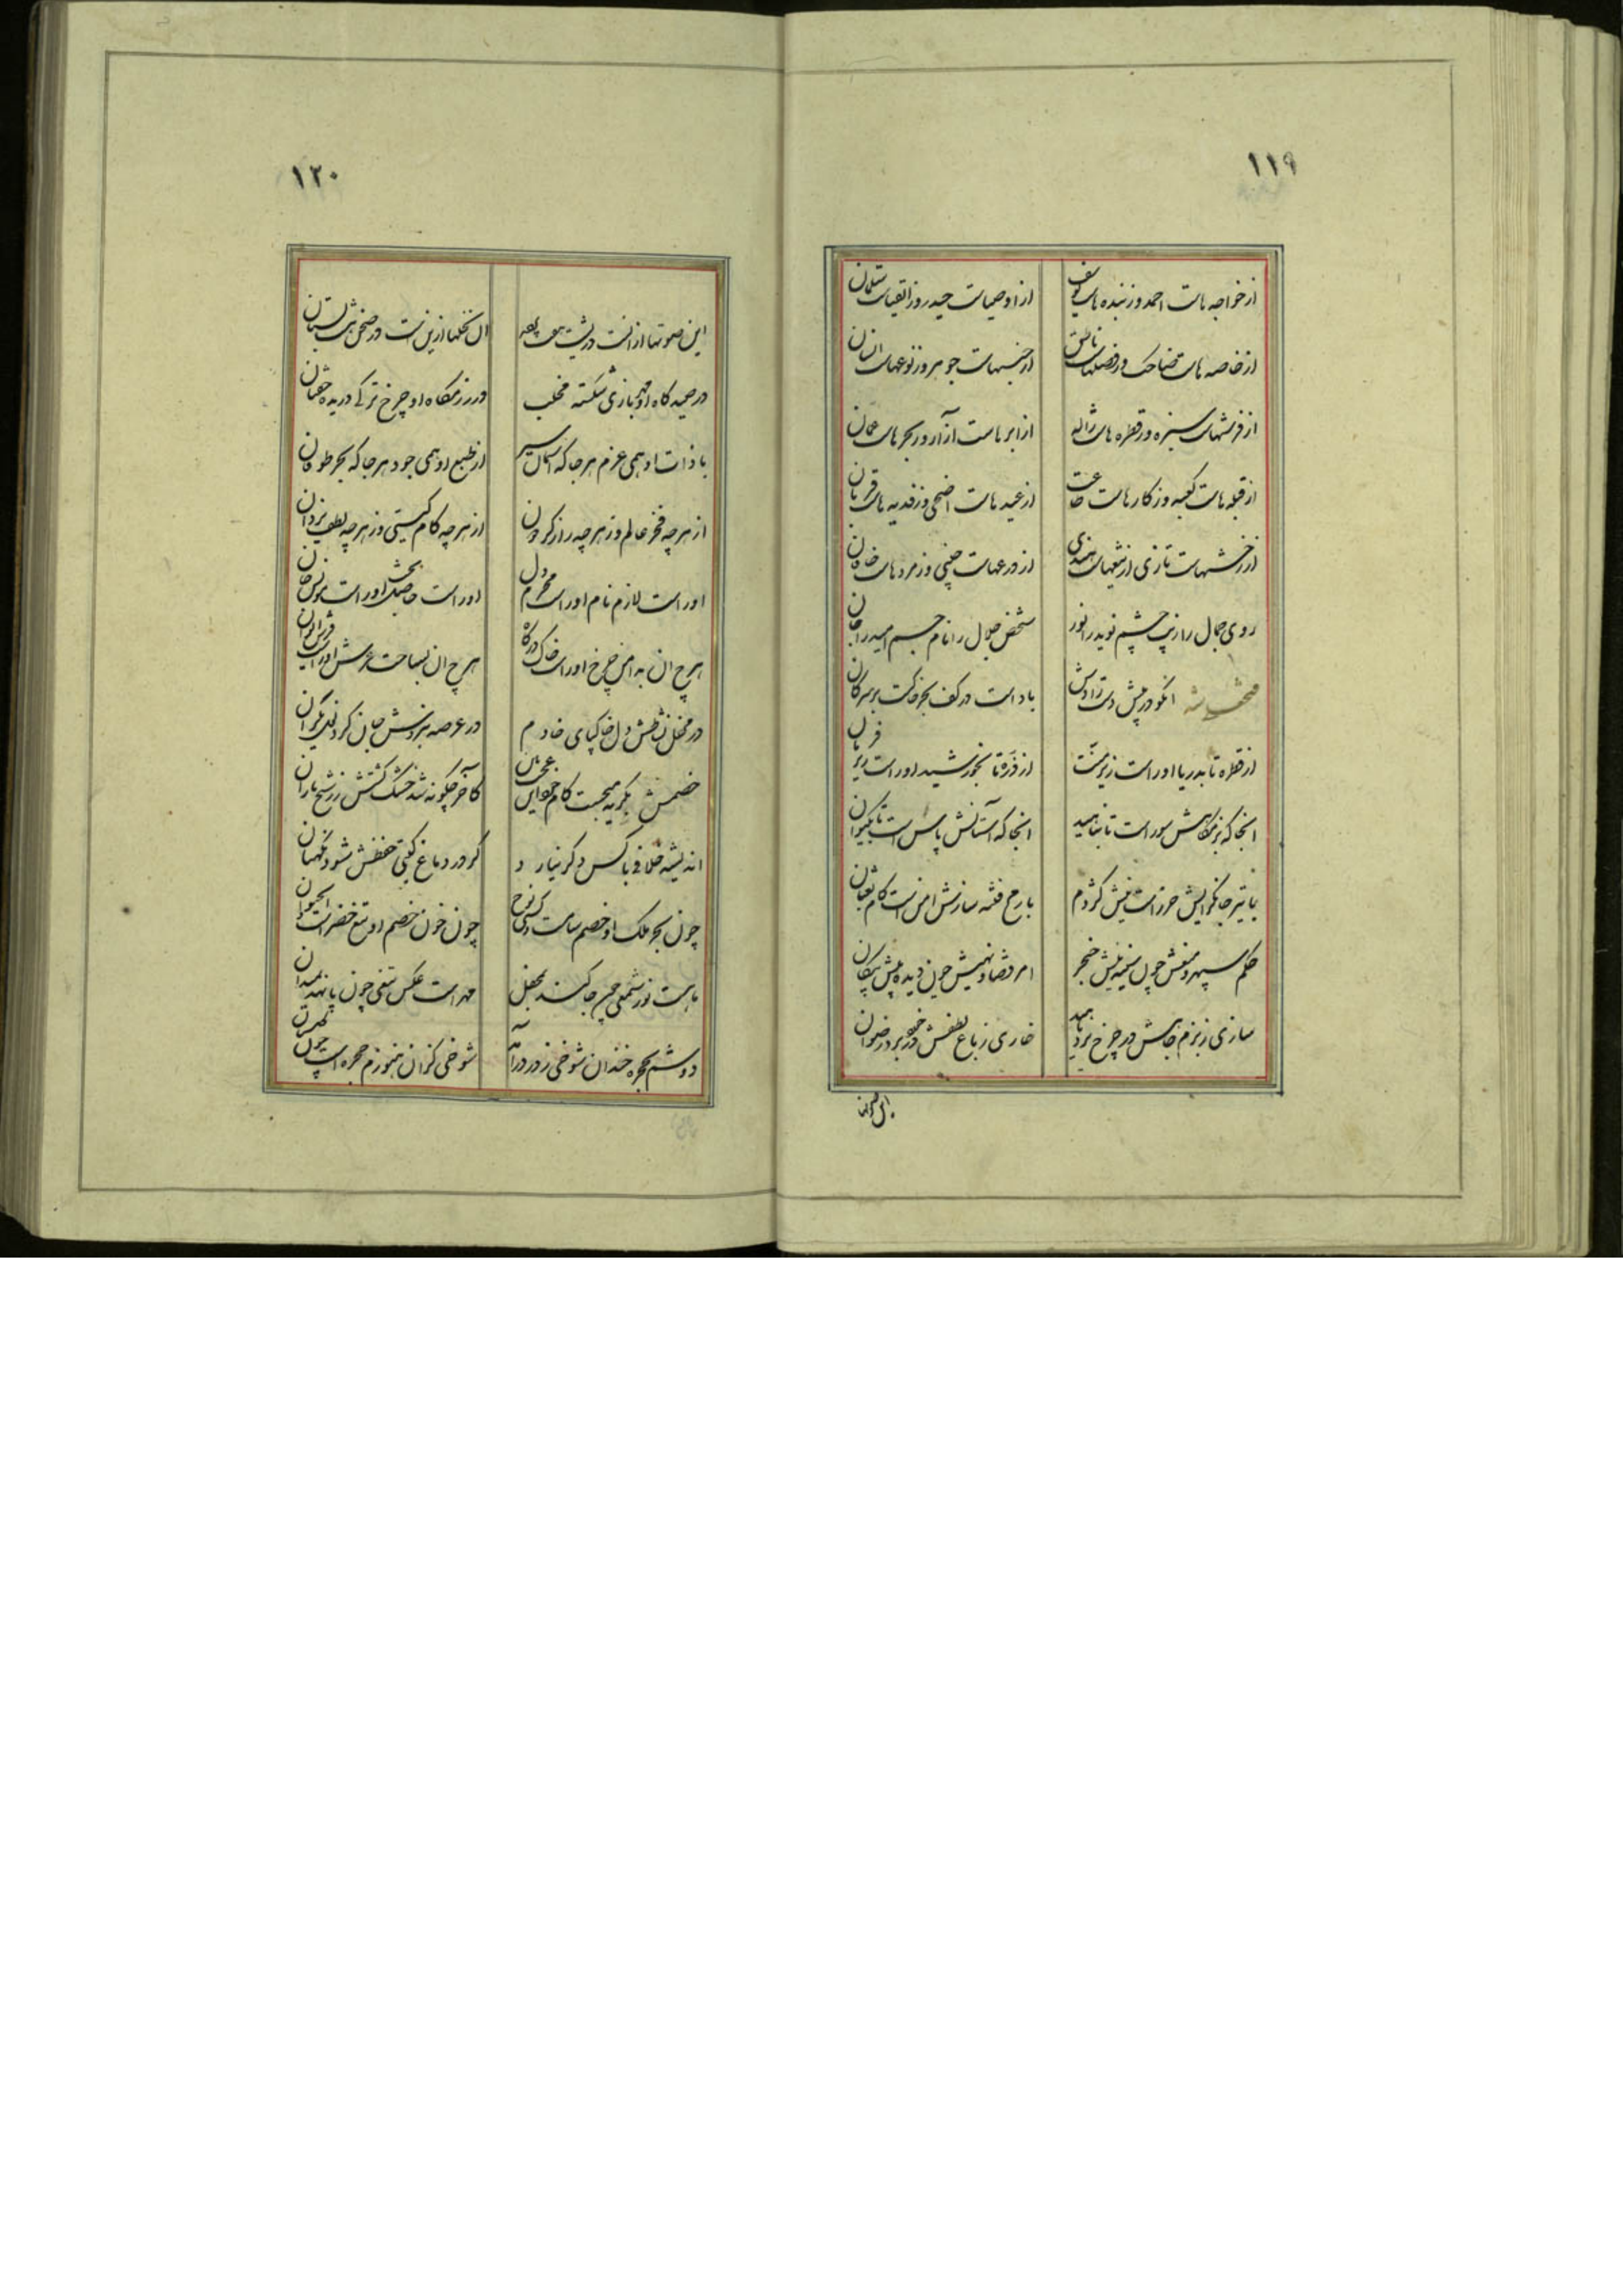 ۱۱۹
از خواجه هات احمد وز بنده هات یوسف از اوصیات حیدر وز اتقیات سلمان
از خاصه هات ضاحک وز فصلهات ناطق از جنسهات جوهر وز نوعهات انسان
از فرشهات سبزه وز قطره هات ژاله از ابرهات آزار وز بحرهات عمان
از قبله هات کعبه وز کارهات طاعت از عیدهات اضحی وز فدیه هات قربان
از رخشهات تازی از تیغهات هندی از درعهات چینی وز مردهات خاقان
روی جمال را زیب چشم نوید را نور شخص جلال را نام جسم امید را جان
شه انکو در پیش دست رادش باد است در کف بحر خاکست بر سر کان
از قطره تا بدریا اوراست زیر منت از ذره تا بخورشید اوراست زیر فرمان
انجا که بزمگاهش سور است تا بناهید انجا که آستانش پاس است تا بکیوان
با تیر جانگزایش حرزاست نیش کژدم با رمح فتنه سازش امن است کام ثعبان
حکم سپهر و منعش چون سینه پیش خنجر امر قضا و نهیش چون دیده پیش پیکان
سازی ز بزم جاهش در چرخ برد ناهید خاری ز باغ لطفش در خلد برد رضوان
۱۲۰
این صوتها از انست در پشت هفت پرده ان نخلها ازین است در صحن هشت بستان
در صیدگاه او مهر بازی شکسته مخلب در رزمگاه او چرخ ترکی دریده خفتان
با ذات او همی عزم هر جا که آسمان سیر از طبع او همی جود هر جا که بحر طوفان
از هرچه فخر عالم وز هرچه راز گردون از هرچه کام گیتی وز هرچه لطف یزدان
اوراست لازم نام اوراست محرم دل اوراست حاصل بخش اوراست مونس جان
هرچ ان به امن چرخ اوراست خاک درگاه هرچ ان بساحت عرش اوراست فرش ایوان
در محفل نشاطش دل خاکپای خادم در عرصه نبردش جان گرد نیکران
خصمش بگریه میجست کام جهان عجب کاخر چگونه شد خشک کشتش ز رشح باران
اندیشه خلافی با کس دگر نیارد گر در دماغ گیتی حفظش شود نگهبان
چون بحر ملک او خصم سام است و کشتی نوح چون خون خصم او تیغ خضر است و آب حیوان
ماهست نور شمعی چون جا کند بمحفل مهر است عکس تیغی چون پا نهد بمیدان
دوشم بحجره خندان شوخی ز در درآمد شوخی کزان هنوزم حجره است چون گلستان